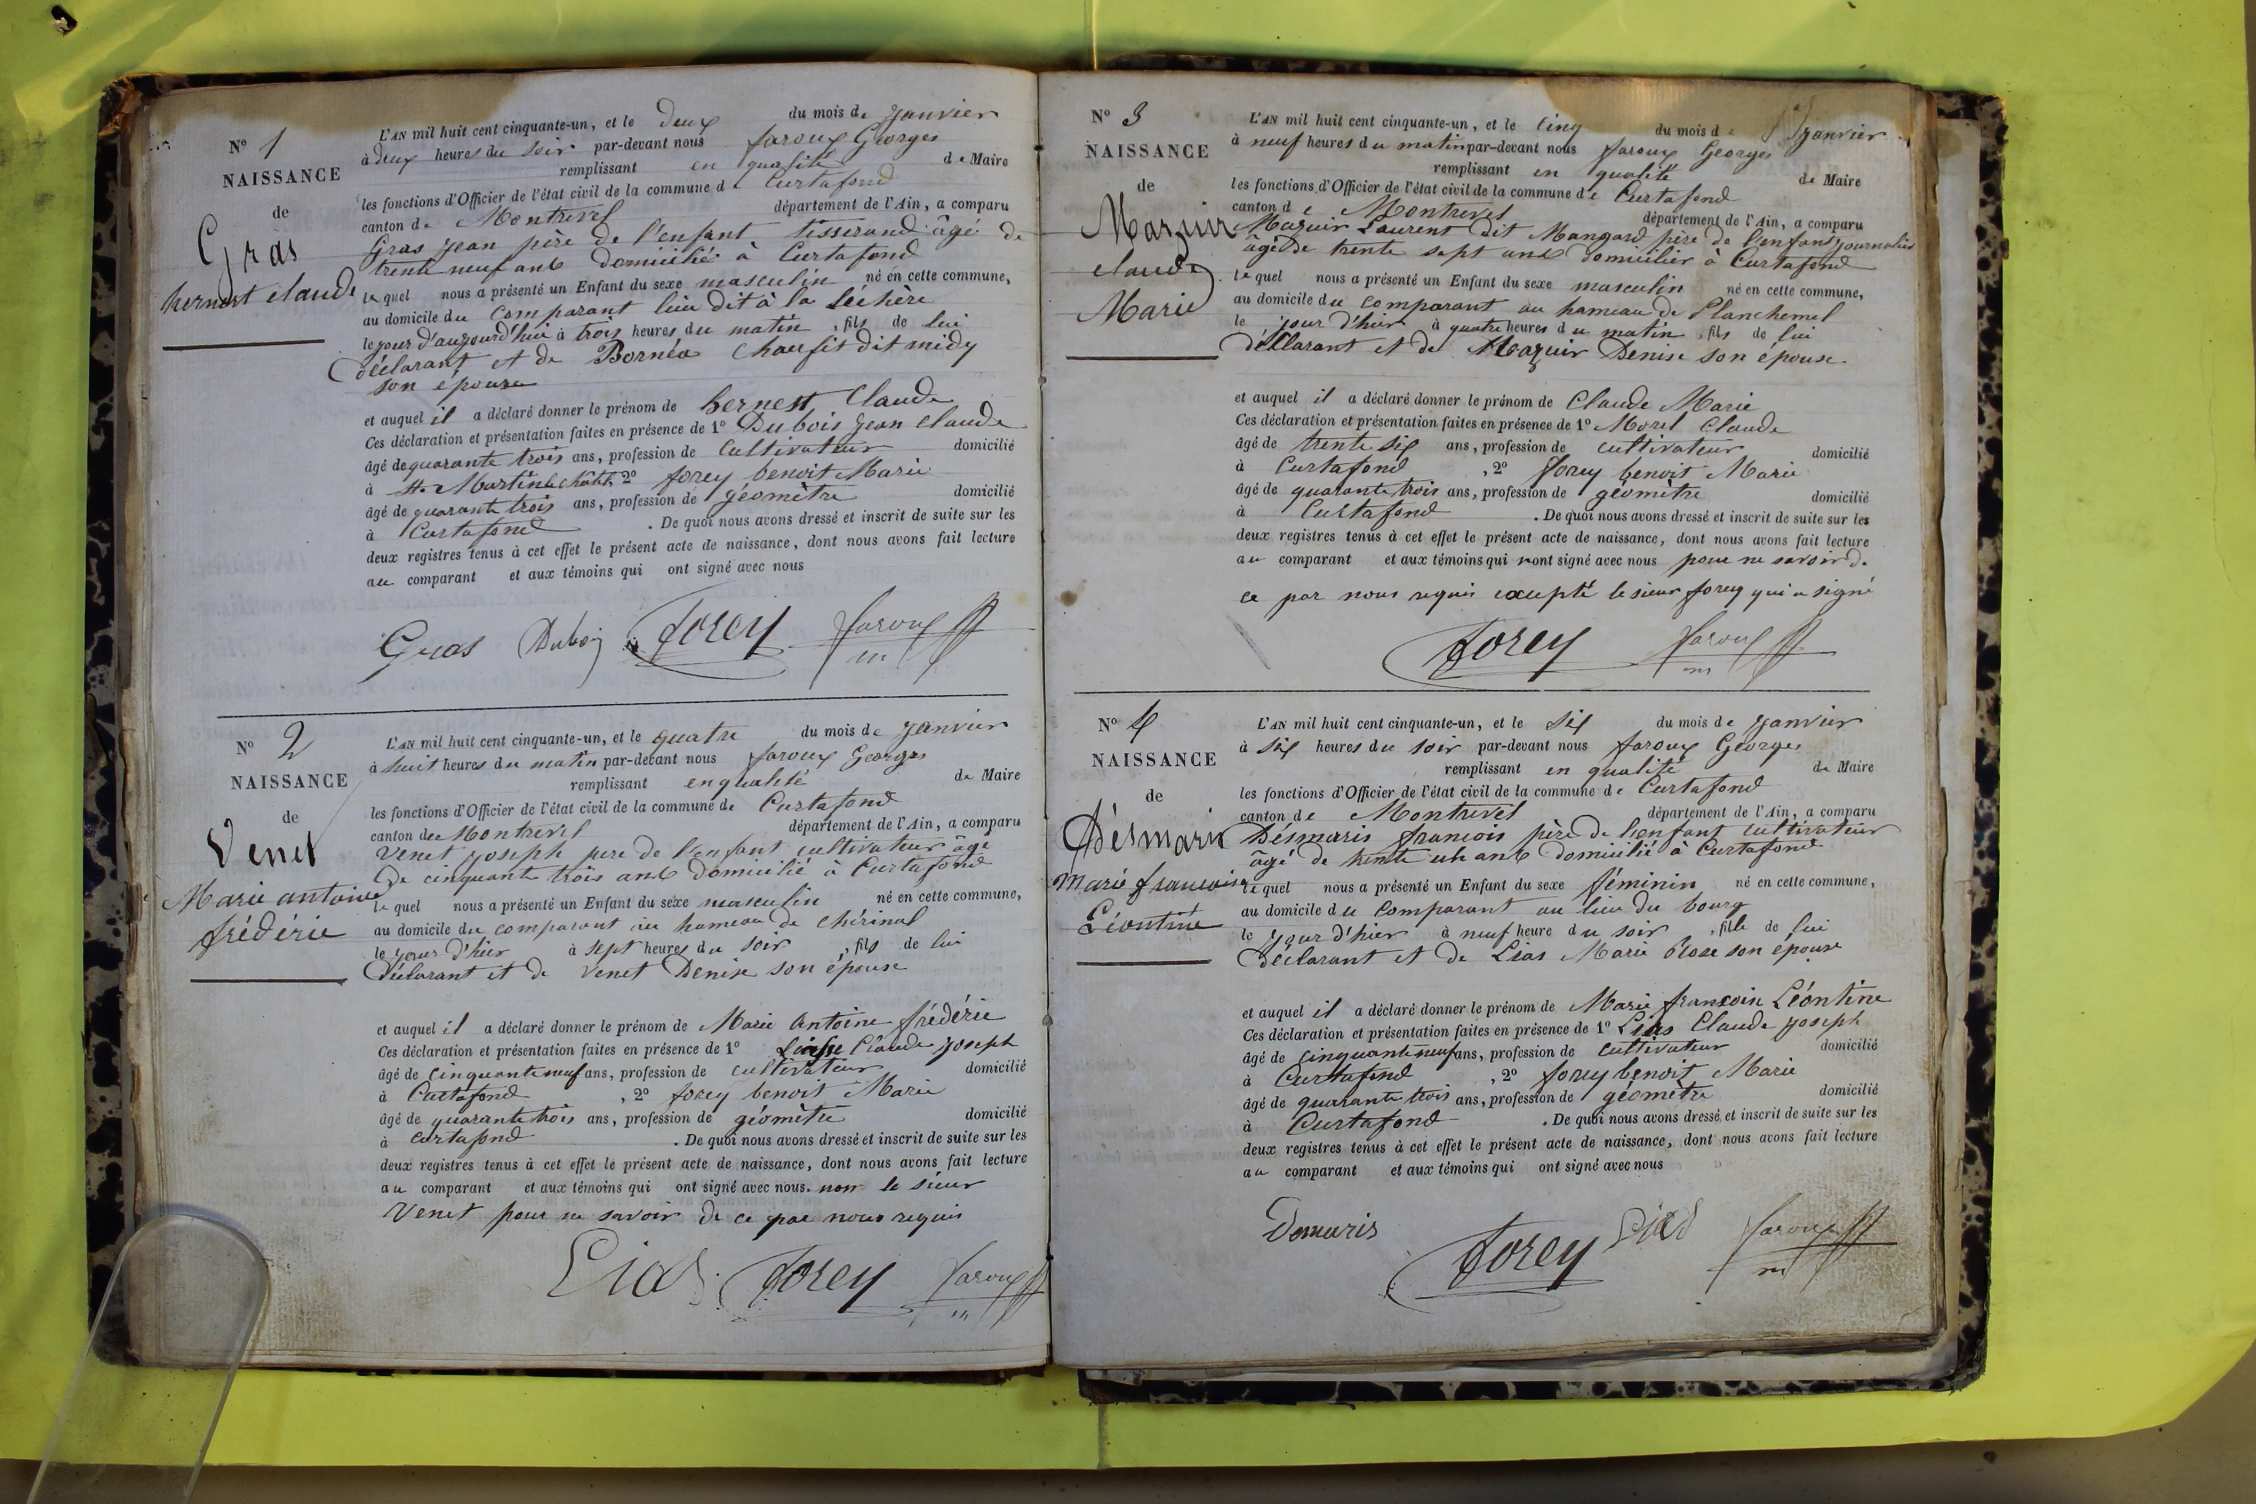 N° 1
NAISSANCE
de
Gras
hernest claude
L'AN mil huit cent cinquante-un, et le deux du mois de janvier
à deux heures du soir par-devant nous faroux Georges
remplissant en qualité de Maire
les fonctions d'Officier de l'état civil de la commune de Curtafond
canton de Montrevel département de l'Ain, a comparu
Gras jean père de l'enfant tisserand âgé de
trente neuf ans domicilié à Curtafond
lequel nous a présenté un Enfant du sexe masculin né en cette commune,
au domicile du comparant lieu dit à la Léchère
le jour d'aujourd'hui à trois heures du matin, fils de lui
déclarant et de dit midy
son épouse
et auquel il a déclaré donner le prénom de hernest Claude
Ces déclaration et présentation faites en présence de 1° Dubois jean claude
âgé de quarante trois ans, profession de Cultivateur domicilié
à St Martin le chatel 2° forey benoit Marie
âgé de quarante trois ans, profession de géomètre domicilié
à Curtafond . De quoi nous avons dressé et inscrit de suite sur les
deux registres tenus à cet effet le présent acte de naissance, dont nous avons fait lecture
au comparant et aux témoins qui ont signé avec nous
Gras Duboi forey faroux
m
N° 2
NAISSANCE
de
Venet
Marie antoine
frédéric
L'AN mil huit cent cinquante-un, et le quatre du mois de janvier
à huit heures du matin par-devant nous faroux Georges
remplissant en qualité de Maire
les fonctions d'Officier de l'état civil de la commune de Curtafond
canton de Montrevel département de l'Ain, a comparu
Venet joseph pere de l'enfant cultivateur âgé
de cinquante trois ans domicilié à Curtafond
lequel nous a présenté un Enfant du sexe masculin né en cette commune,
au domicile du comparant au hameau de chérinal
le jour d'hier à sept heures du soir, fils de lui
déclarant et de Venet Denise son épouse
et auquel il a déclaré donner le prénom de Marie Antoine frédéric
Ces déclaration et présentation faites en présence de 1° Claude joseph
âgé de cinquante neuf ans, profession de cultivateur domicilié
à Curtafond , 2° forey benoit Marie
âgé de quarante trois ans, profession de géomètre domicilié
à curtafond . De quoi nous avons dressé et inscrit de suite sur les
deux registres tenus à cet effet le présent acte de naissance, dont nous avons fait lecture
au comparant et aux témoins qui ont signé avec nous. non le sieur
Venet pour ne savoir de ce par nous requis
Lias forey faroux
m
N° 3
NAISSANCE
de
Mazuir
claude
Marie
L'AN mil huit cent cinquante-un, et le cinq du mois de janvier
à neuf heures du matin par-devant nous faroux Georges
remplissant en qualité de Maire
les fonctions d'Officier de l'état civil de la commune de Curtafond
canton de Montrevel département de l'Ain, a comparu
Mazuir Laurent dit Mangard père de l'enfant journalier
âgé de trente sept ans domicilier à Curtafond
lequel nous a présenté un Enfant du sexe masculin né en cette commune,
au domicile du comparant au hameau de Planchemel
le jour d'hier à quatre heures du matin, fils de lui
déclarant et de Mazuir Denise son épouse
et auquel il a déclaré donner le prénom de Claude Marie
Ces déclaration et présentation faites en présence de 1° Morel Claude
âgé de trente six ans, profession de cultivateur domicilié
à Curtafond , 2° forey benoit Marie
âgé de quarante trois ans, profession de géomètre domicilié
à Curtafond . De quoi nous avons dressé et inscrit de suite sur les
deux registres tenus à cet effet le présent acte de naissance, dont nous avons fait lecture
au comparant et aux témoins qui n'ont signé avec nous pour ne savoir de
ce par nous requis excepté le sieur forey qui a signé
forey faroux
m
N° 4
NAISSANCE
de
Désmaris
marie francoise
Léontine
L'AN mil huit cent cinquante-un, et le six du mois de janvier
à six heures du soir par-devant nous faroux Georges
remplissant en qualité de Maire
les fonctions d'Officier de l'état civil de la commune de Curtafond
canton de Montrevel département de l'Ain, a comparu
Désmaris francois père de l'enfant cultivateur
âgé de trente un ans domicilié à Curtafond
lequel nous a présenté un Enfant du sexe féminin né en cette commune,
au domicile du comparant au lieu du bourg
le jour d'hier à neuf heure du soir, fille de lui
déclarant et de Lias Marie son épouse
et auquel il a déclaré donner le prénom de Marie francoise Léontine
Ces déclaration et présentation faites en présence de 1° Lias Claude joseph
âgé de cinquante neuf ans, profession de cultivateur domicilié
à Curtafond , 2° forey benoit Marie
âgé de quarante trois ans, profession de géomètre domicilié
à Curtafond . De quoi nous avons dressé et inscrit de suite sur les
deux registres tenus à cet effet le présent acte de naissance, dont nous avons fait lecture
au comparant et aux témoins qui ont signé avec nous
Demaris forey Lias faroux
m